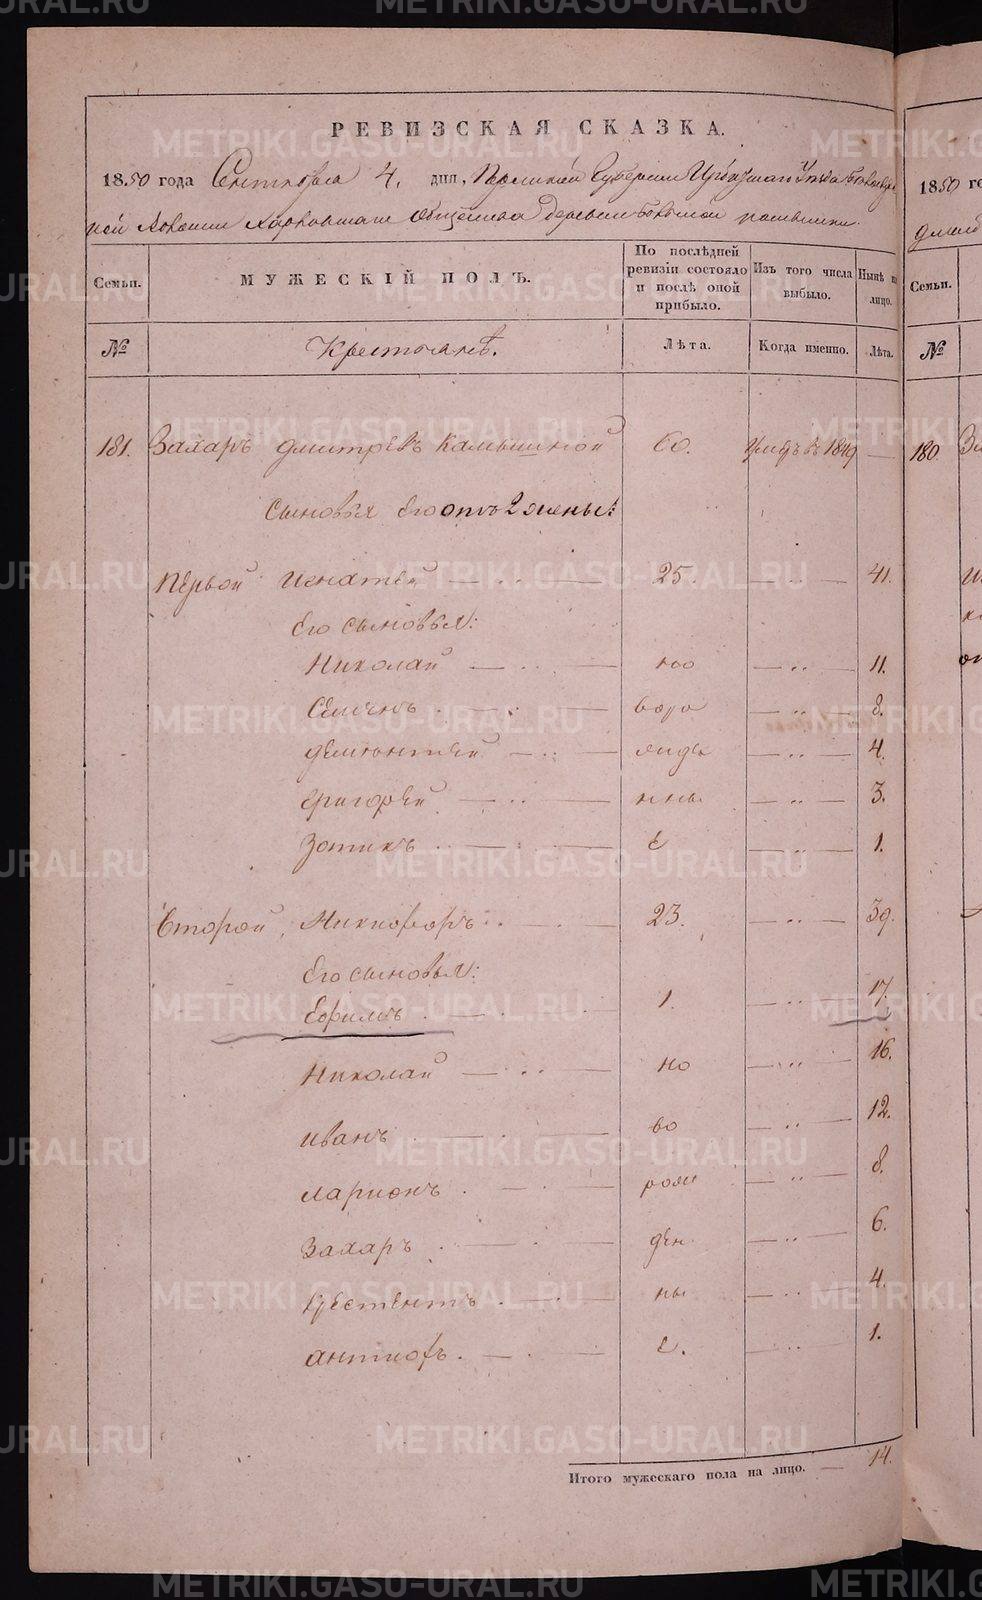 РЕВИЗСКАЯ СКАЗКА.
1850 года Сентября 4. дня, Пермской Губернии Ирбитскаго Уѣзда
волости общества деревни
Семьи.
МУЖЕСКІЙ ПОЛЪ.
По послѣдней ревизіи состояло и послѣ оной прибыло.
Изъ того числа выбыло.
Нынѣ на лицо.
№
Крестьяне.
Лѣта.
Когда именно.
Лѣта.
181. Захаръ Дмитревъ Камышной 60. Умеръ въ 1849 —
Сыновья Его отъ 2 жены:
Первой Игнатей — 25. — 41.
Его сыновья:
Николай — но — 11.
Семенъ — воро — 8.
Дементей — жде — 4.
Григорей — нны — 3.
Зотикъ — е — 1.
Второй, Никифоръ — 23. — 39.
Его сыновья:
Ефимъ — 1. — 17.
Николай — но — 16.
Иванъ — во — 12.
Ларионъ — рож — 8.
Захаръ — ден — 6.
Крестентъ — ны — 4.
Антиофъ — е. — 1.
Итого мужескаго пола на лицо. — 14.
1850 го
Семьи.
№
180.
METRIKI.GASO-URAL.RU